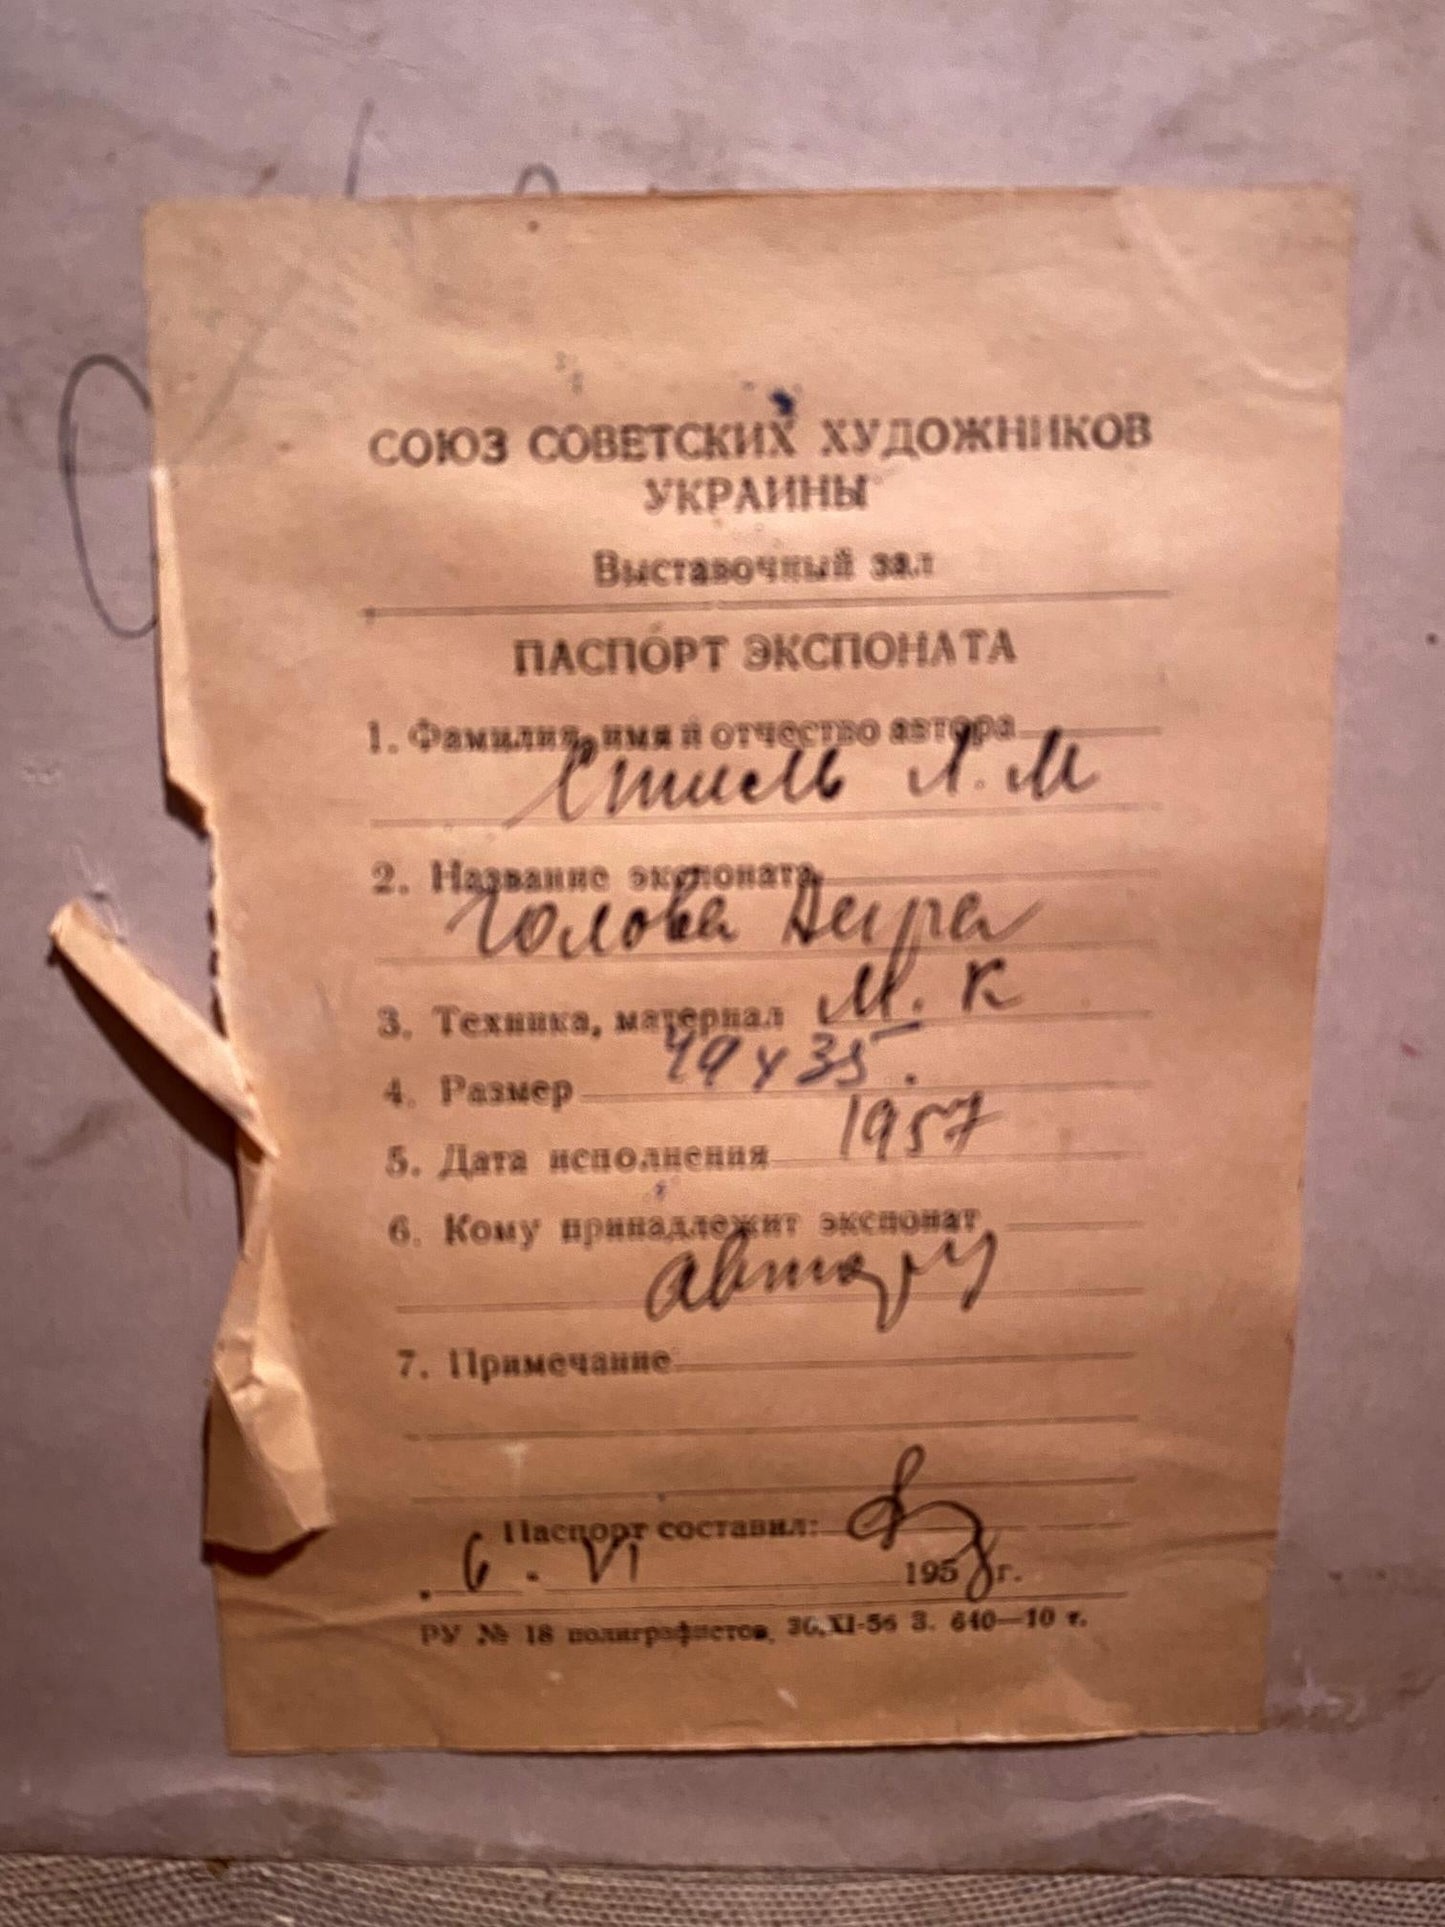 СОЮЗ СОВЕТСКИХ ХУДОЖНИКОВ
УКРАИНЫ
Выставочный зал
ПАСПОРТ ЭКСПОНАТА
1. Фамилия, имя и отчество автора
Стиль Л. М
2. Название экспоната
Голова
3. Техника, материал М. К
4. Размер 49 х 35.
5. Дата исполнения 1957
6. Кому принадлежит экспонат
автору
7. Примечание
Паспорт составил:
„ 6 " VI 1958 г.
РУ № 18 полиграфистов, 30.XI-56 З. 640—10 т.